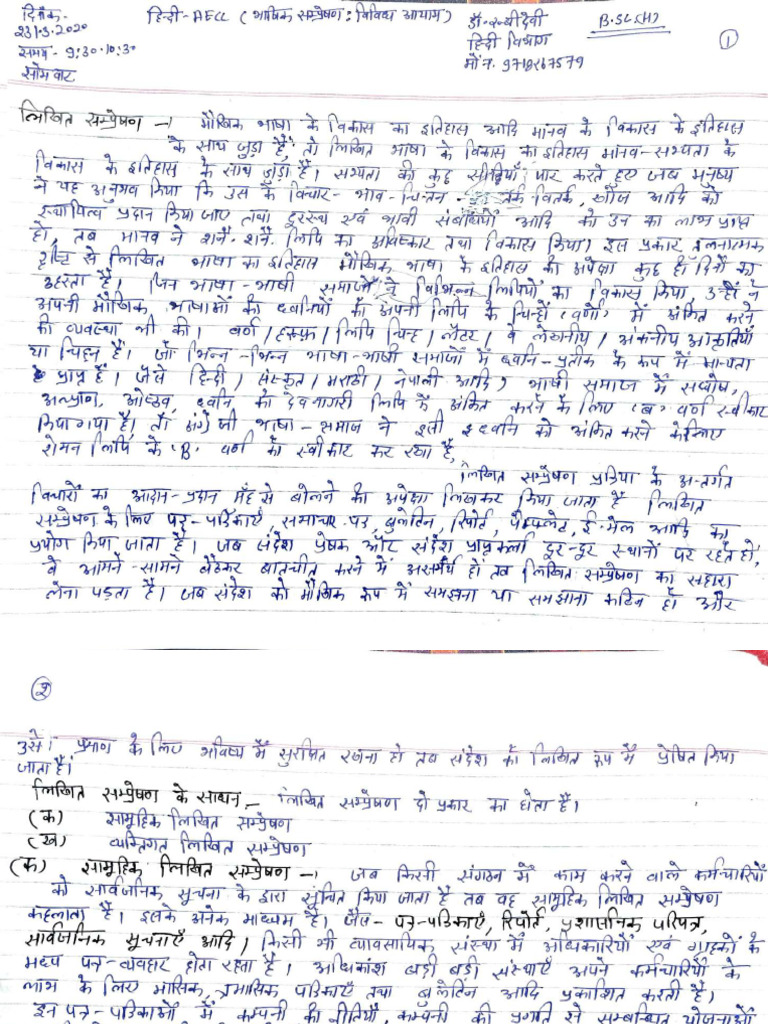 दिनांक-
23/3/2020
समय - 9:30-10:30
सोमवार
हिन्दी-AECC (भाषिक सम्प्रेषण: विविध आयाम)
डॉ.
हिंदी विभाग
मो.न. 9718267579
B.SC(H)
1
लिखित सम्प्रेषण -: मौखिक भाषा के विकास का इतिहास आदि मानव के विकास के इतिहास
के साथ जुड़ा है, तो लिखित भाषा के विकास का इतिहास मानव-सभ्यता के
विकास के इतिहास के साथ जुड़ा है। सभ्यता की कुछ सीढ़ियाँ पार करते हुए जब मनुष्य
ने यह अनुभव किया कि उस के विचार-भाव-चिन्तन - तर्क वितर्क, खोज आदि को
स्थायित्व प्रदान किया जाए तथा दूरस्थ एवं भावी संबंधियों आदि को उन का लाभ प्राप्त
हो, तब मानव ने शनैः शनैः लिपि का आविष्कार तथा विकास किया। इस प्रकार तुलनात्मक
दृष्टि से लिखित भाषा का इतिहास मौखिक भाषा के इतिहास की अपेक्षा कुछ ही दिनों का
ठहरता है। जिन भाषा-भाषी समाजों ने विभिन्न लिपियों का विकास किया, उन्होंने
अपनी मौखिक भाषाओं की ध्वनियों को अपनी लिपि के चिन्हों (वर्णों) में अंकित करने
की व्यवस्था भी की। वर्ण/हरूफ़/लिपि चिन्ह/लैटर, वे लेखनीय/अंकनीय आकृतियाँ
या चिहन हैं। जो भिन्न-भिन्न भाषा-भाषी समाजों में ध्वनि-प्रतीक के रूप में मान्यता
प्राप्त हैं। जैसे हिन्दी/संस्कृत/मराठी/नेपाली आदि) भाषी समाज में सघोष,
अल्पप्राण, ओष्ठ्य, ध्वनि को देवनागरी लिपि में अंकित करने के लिए (ब) वर्ण स्वीकार
किया गया है। तो अंग्रेजी भाषा-समाज ने इसी ध्वनि को अंकित करने के लिए
रोमन लिपि के 'B' वर्ण को स्वीकार कर रखा है,
लिखित सम्प्रेषण प्रक्रिया के अन्तर्गत
विचारों का आदान-प्रदान मुँह से बोलने की अपेक्षा लिखकर किया जाता है लिखित
सम्प्रेषण के लिए पत्र-पत्रिकाएँ, समाचार पत्र, बुलेटिन, रिपोर्ट, पैम्पलेट, ई-मेल आदि का
प्रयोग किया जाता है। जब संदेश प्रेषक और संदेश प्राप्तकर्ता दूर-दूर स्थानों पर रहते हो,
वे आमने-सामने बैठकर बातचीत करने में असमर्थ हों तब लिखित सम्प्रेषण का सहारा
लेना पड़ता है। जब संदेश को मौखिक रूप में समझना या समझाना कठिन हो और
2
उसे प्रमाण के लिए भविष्य में सुरक्षित रखना हो तब संदेश को लिखित रूप में प्रेषित किया
जाता है।
लिखित सम्प्रेषण के साधन - लिखित सम्प्रेषण दो प्रकार का होता है।
(क) सामूहिक लिखित सम्प्रेषण
(ख) व्यक्तिगत लिखित सम्प्रेषण
(क) सामूहिक लिखित सम्प्रेषण -: जब किसी संगठन में काम करने वाले कर्मचारियों
को सार्वजनिक सूचना के द्वारा सूचित किया जाता है तब वह सामूहिक लिखित सम्प्रेषण
कहलाता है। इसके अनेक माध्यम है। जैसे- पत्र-पत्रिकाएँ, रिपोर्ट, प्रशासनिक परिपत्र,
सार्वजनिक सूचनाएँ आदि। किसी भी व्यावसायिक संस्था में अधिकारियों एवं ग्राहकों के
मध्य पत्र-व्यवहार होता रहता है। अधिकांश बड़ी बड़ी संस्थाएँ अपने कर्मचारियों के
लाभ के लिए मासिक, त्रमासिक पत्रिकाएँ तथा बुलेटिन आदि प्रकाशित करती है।
इन पत्र-पत्रिकाओं में कम्पनी की नीतियाँ, कम्पनी की प्रगति से सम्बन्धित योजनाओं